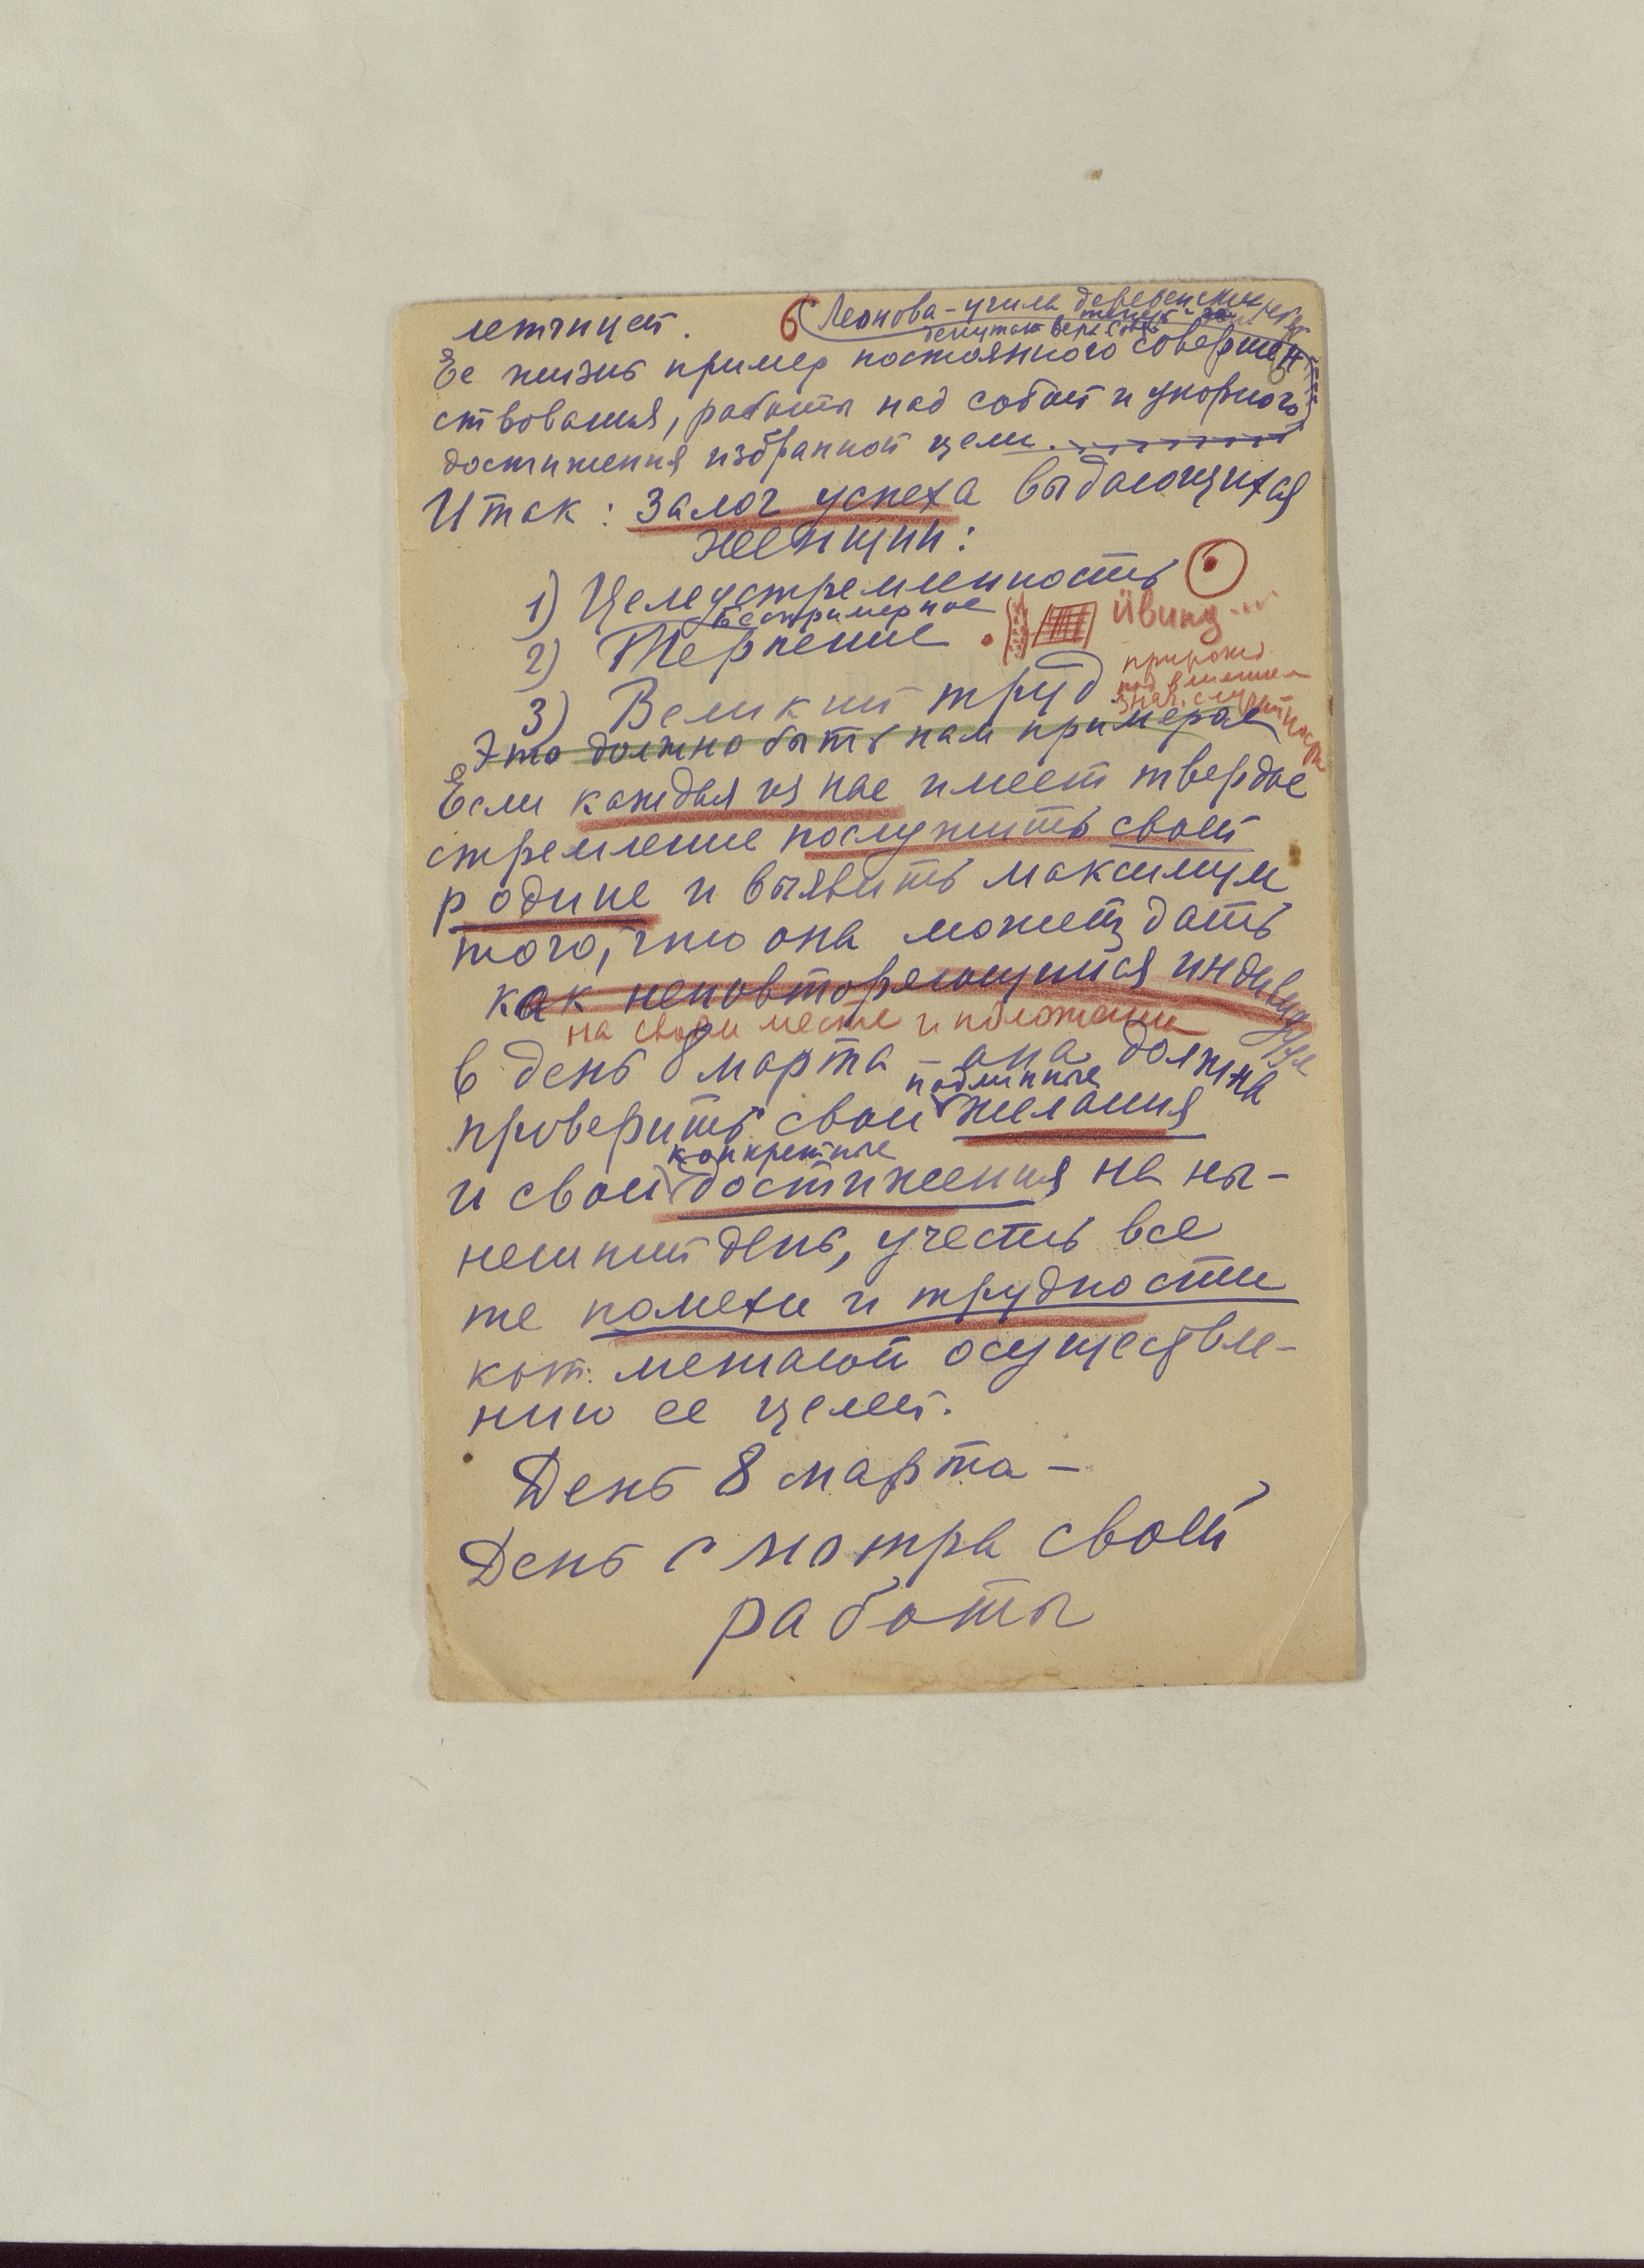 летчицей.
6 Леонова - учила деревенских
депутат Верх. Сов.
Ее жизнь пример постоянного совершен
ствования, работы над собой и упорного
достижения избранной цели.
Итак: залог успеха выдающихся
женщин:
1) Целеустремленность
беспримерное
2) Терпение
3) Великий труд
природ
под влиянием
Это должно быть нам примером
Если каждая из нас имеет твердое
стремление послужить своей
родине и выявить максимум
того, что она может дать
как неповторяющийся индивидуум
на своем месте и положении
в день 8 марта - она должна
подлинные
проверить свои желания
конкретные
и свои достижения на ны-
нешний день, учесть все
те помехи и трудности
кот. мешают осуществле-
нию ее целей.
День 8 марта -
День смотра своей
работы